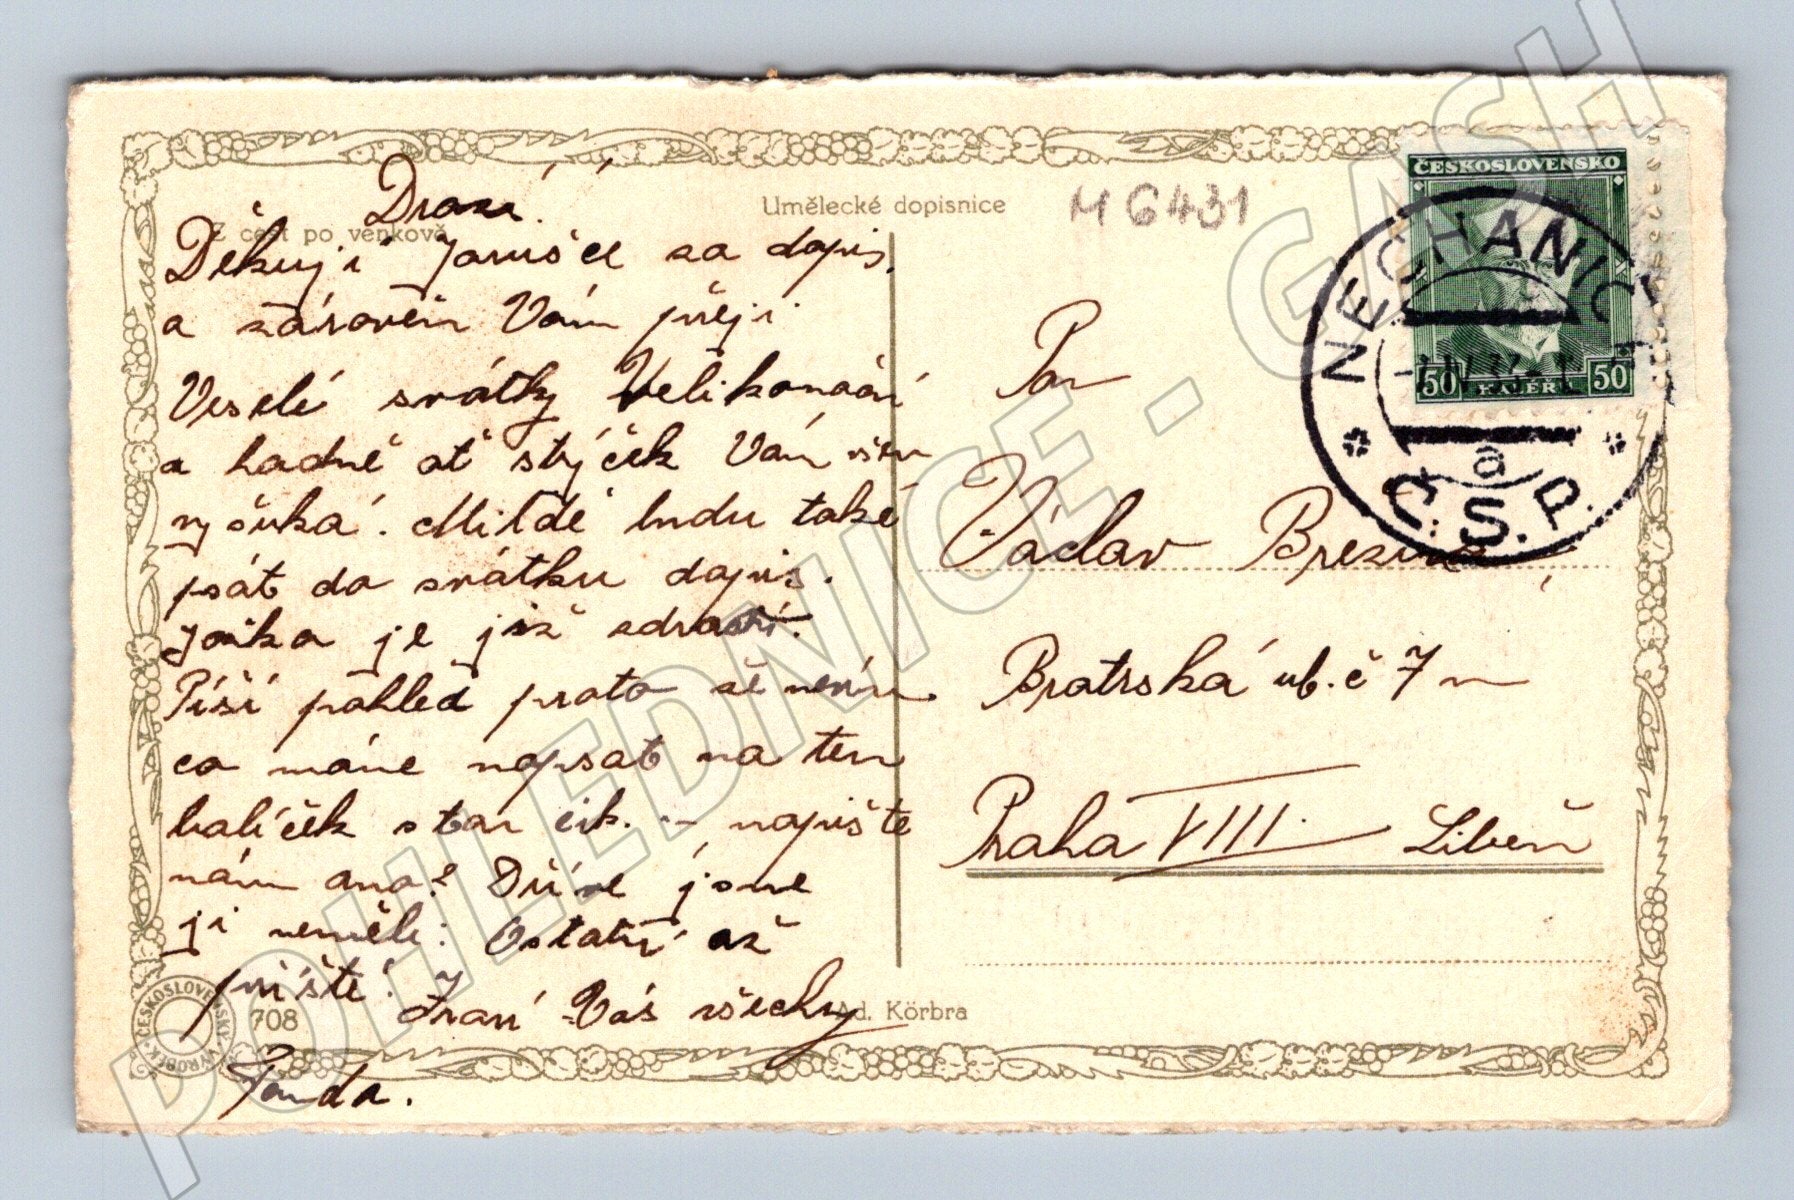 Drazí.
Z cest po venkově
Děkuji Jarušce za dopis.
a zároveň Vám přeji
Veselé svátky Velikonoční
a hodně ať strýček Vám
Mildě budu také
psát do svátku dopis.
Joška je již zdravší.
Píši pohled proto že nevím
co máme napsat na ten
balíček napište
nám ano? Dříve jsme
ji neměli: Ostatní až
příště! Zdraví Vás všechny
Jenda.
708
ČESKOSLOVENSKÝ VÝROBEK
Umělecké dopisnice
Ad. Körbra
M 6431
ČESKOSLOVENSKO
50 HALÉŘŮ 50
NECHANICE
a
Č.S.P.
Pan
Václav Brezina
Bratrská ul. č 7
Praha VIII. Libeň
POHLEDNICE - GASH